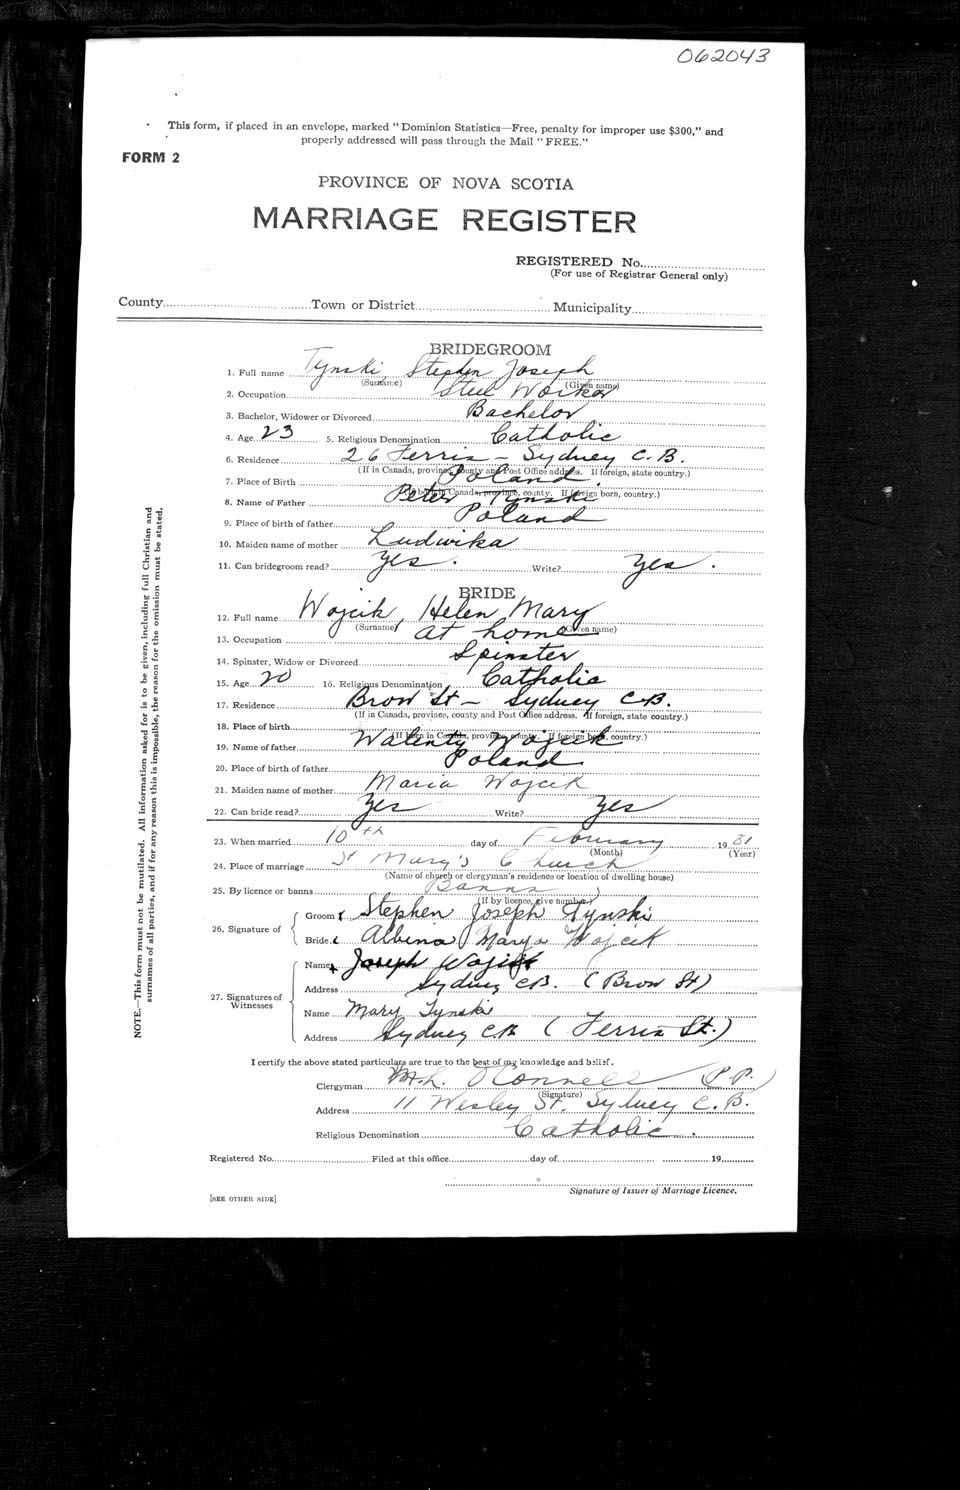 062043
This form, if placed in an envelope, marked "Dominion Statistics—Free, penalty for improper use $300," and
properly addressed will pass through the Mail "FREE."
FORM 2
PROVINCE OF NOVA SCOTIA
MARRIAGE REGISTER
REGISTERED No.
(For use of Registrar General only)
County Town or District Municipality
BRIDEGROOM
1. Full name Tynski Stephen Joseph
(Surname) (Given name)
2. Occupation Steel Worker
3. Bachelor, Widower or Divorced Bachelor
4. Age 23 5. Religious Denomination Catholic
6. Residence 26 Ferris – Sydney C.B.
(If in Canada, province, county and Post Office address. If foreign, state country.)
7. Place of Birth Poland
(If born in Canada, province, county. If foreign born, country.)
8. Name of Father Peter Tynski
9. Place of birth of father Poland
10. Maiden name of mother Ludwika
11. Can bridegroom read? Yes. Write? Yes.
BRIDE
12. Full name Wojcik, Helen Mary
(Surname) (Given name)
13. Occupation at home
14. Spinster, Widow or Divorced Spinster
15. Age 20 16. Religious Denomination Catholic
17. Residence Brow St – Sydney C.B.
(If in Canada, province, county and Post Office address. If foreign, state country.)
18. Place of birth
(If born in Canada, province, county. If foreign born, country.)
19. Name of father Walenty Wojcik
20. Place of birth of father Poland
21. Maiden name of mother Maria Wojcik
22. Can bride read? Yes Write? Yes
23. When married 10th day of February 1931
(Month) (Year)
24. Place of marriage St Mary's Church
(Name of church or clergyman's residence or location of dwelling house)
25. By licence or banns Banns
(If by licence, give number)
26. Signature of Groom Stephen Joseph Tynski
Bride Albina Marya Wojcik
27. Signatures of Witnesses
Name Joseph Wojcik
Address Sydney C.B. (Brow St)
Name Mary Tynski
Address Sydney C.B. (Ferris St.)
I certify the above stated particulars are true to the best of my knowledge and belief.
Clergyman O'Connell P.P.
(Signature)
Address 11 Wesley St. Sydney C.B.
Religious Denomination Catholic.
Registered No. Filed at this office day of 19
Signature of Issuer of Marriage Licence.
[SEE OTHER SIDE]
NOTE.—This form must not be mutilated. All information asked for is to be given, including full Christian and
surnames of all parties, and if for any reason this is impossible, the reason for the omission must be stated.